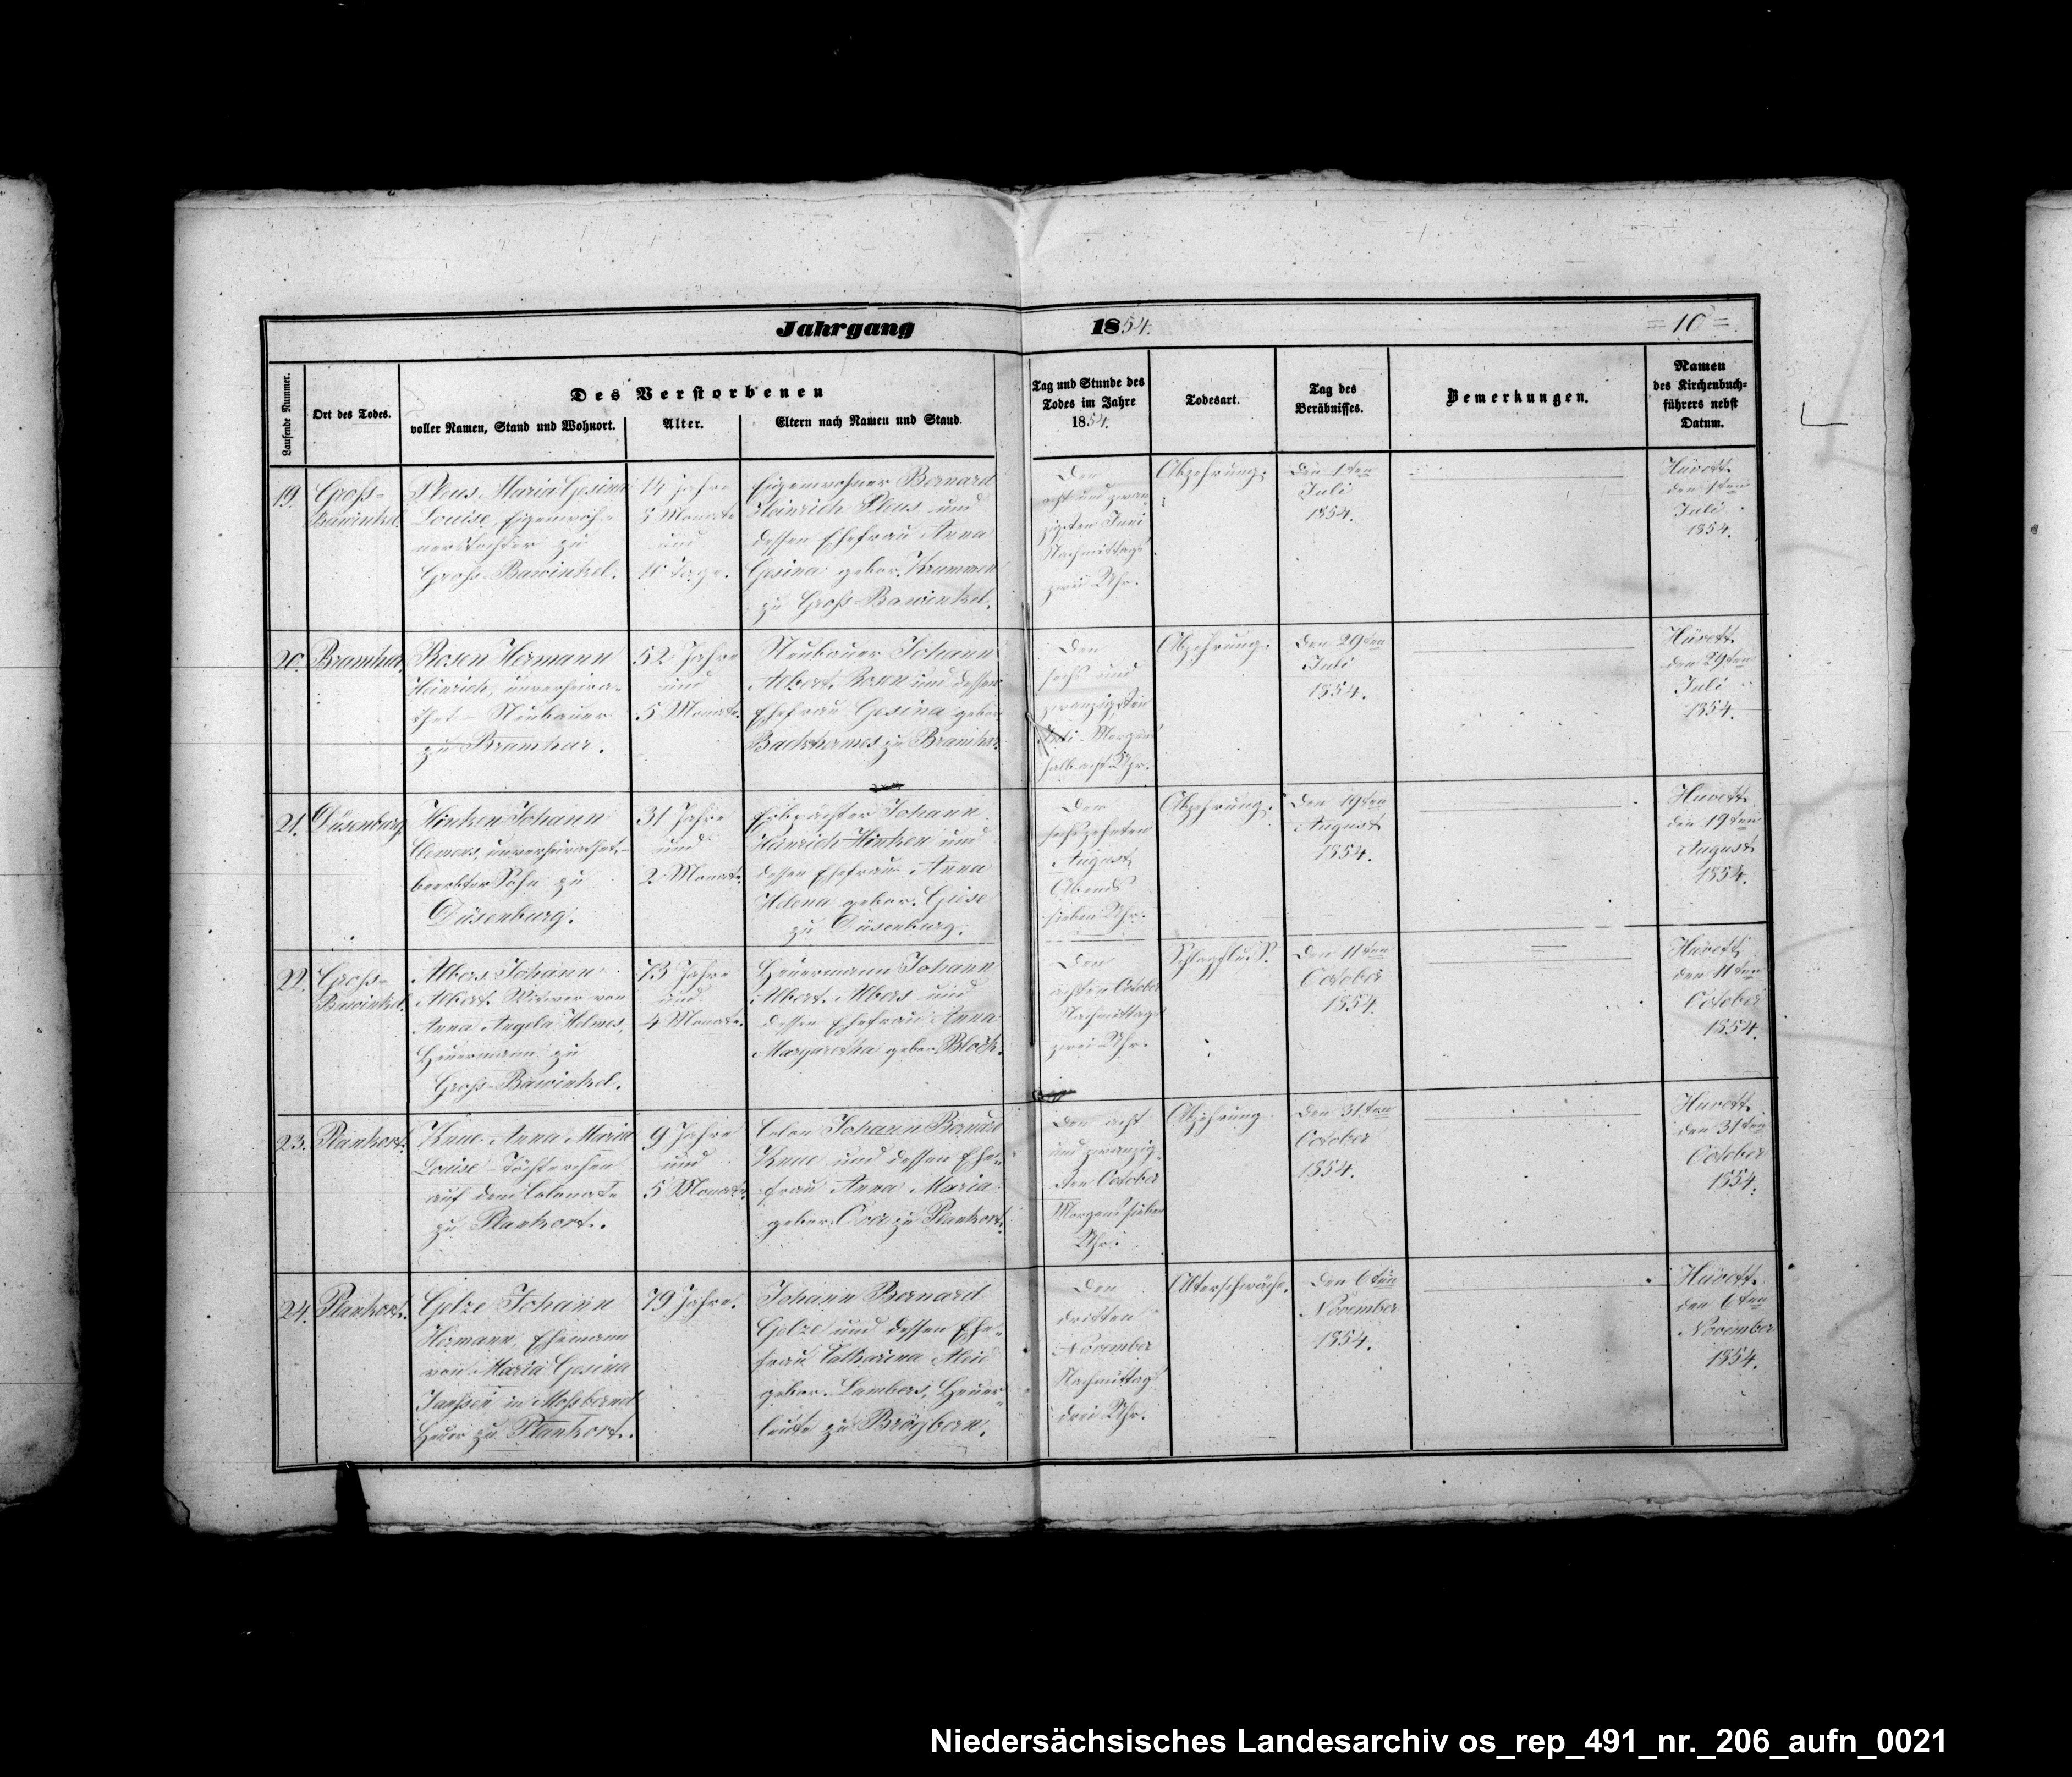 Jahrgang 1854. =10=
Laufende Nummer.
Ort des Todes.
Des Verstorbenen
voller Namen, Stand und Wohnort.
Alter.
Eltern nach Namen und Stand.
Tag und Stunde des
Todes im Jahre
1854.
Todesart.
Tag des
Beräbnisses.
Bemerkungen.
Namen
des Kirchenbuch-
führers nebst
Datum.
19.
Groß-
Bawinkel.
Pleus Maria Gesina
Louise, Eigenwoh-
nerstochter zu
Groß-Bawinkel.
14 Jahre
Monate
und
10 Tage.
Eigenwohner Bernard
Heinrich Pleus und
dessen Ehefrau Anna
Gesina gebor. Krummen
zu Groß-Bawinkel.
Den
acht und zwan
zigsten Juni
Nachmittags
zwei Uhr.
Abzehrung.
Den 1ten
Juli
1854.
Hüvett
den 1ten
Juli
1854.
20.
Bramhar
Rosen Hermann
Heinrich, unverheira-
thet - Neubauer
zu Bramhar.
52 Jahre
und
5 Monate.
Neubauer Johann
Albert Rosen und dessen
Ehefrau Gesina gebor.
Backhermes zu Bramhar.
Den
sechs und
zwanzigsten
Juli Morgens
halb acht Uhr.
Abzehrung.
Den 29ten
Juli
1854.
Hüvett
den 29ten
Juli
1854.
21.
Düsenburg
Hinken Johann
Clemens, unverheirathet,-
beerbter Sohn zu
Düsenburg.
31 Jahre
und
2 Monate.
Erbpächter Johann
Heinrich Hinken und
dessen Ehefrau Anna
Helena gebor. Giese
zu Düsenburg.
Den
sechszehnten
August
Abends
sieben Uhr.
Abzehrung.
Den 19ten
August
1854.
Hüvett
den 19ten
August
1854.
22.
Groß-
Bawinkel.
Albers Johann
Albert, Witwer von
Anna Angela Helmes,
Heuermann zu
Groß-Bawinkel.
73 Jahre
und
4 Monate.
Heuermann Johann
Albert Albers und
dessen Ehefrau Anna
Margaretha gebor. Block.
Den
achten October
Nachmittags
zwei Uhr.
Schlagfluß.
Den 11ten
October
1854.
Hüvett
den 11ten
October
1854.
23.
Plankort.
Knue Anna Maria
Louise - Töchterchen
auf dem Colonate
zu Plankort.
9 Jahre
und
5 Monate.
Colon Johann Bernard
Knue und dessen Ehe-
frau Anna Maria
gebor. zu Plankort.
Den acht
und zwanzig-
sten October
Morgens sieben
Uhr.
Abzehrung.
Den 31ten
October
1854.
Hüvett
den 31ten
October
1854.
24.
Plankort.
Gelze Johann
Hermann, Ehemann
von Maria Gesina
Janßen in Moßbernd
Heuer zu Plankort.
79 Jahre.
Johann Bernard
Gelze und dessen Ehe-
frau Catharina Aleid
gebor. Lambers, Heuer-
leute zu Brögbern.
Den
dritten
November
Nachmittags
drei Uhr.
Altersschwäche.
Den 6ten
November
1854.
Hüvett
den 6ten
November
1854.
Niedersächsisches Landesarchiv os_rep_491_nr._206_aufn_0021